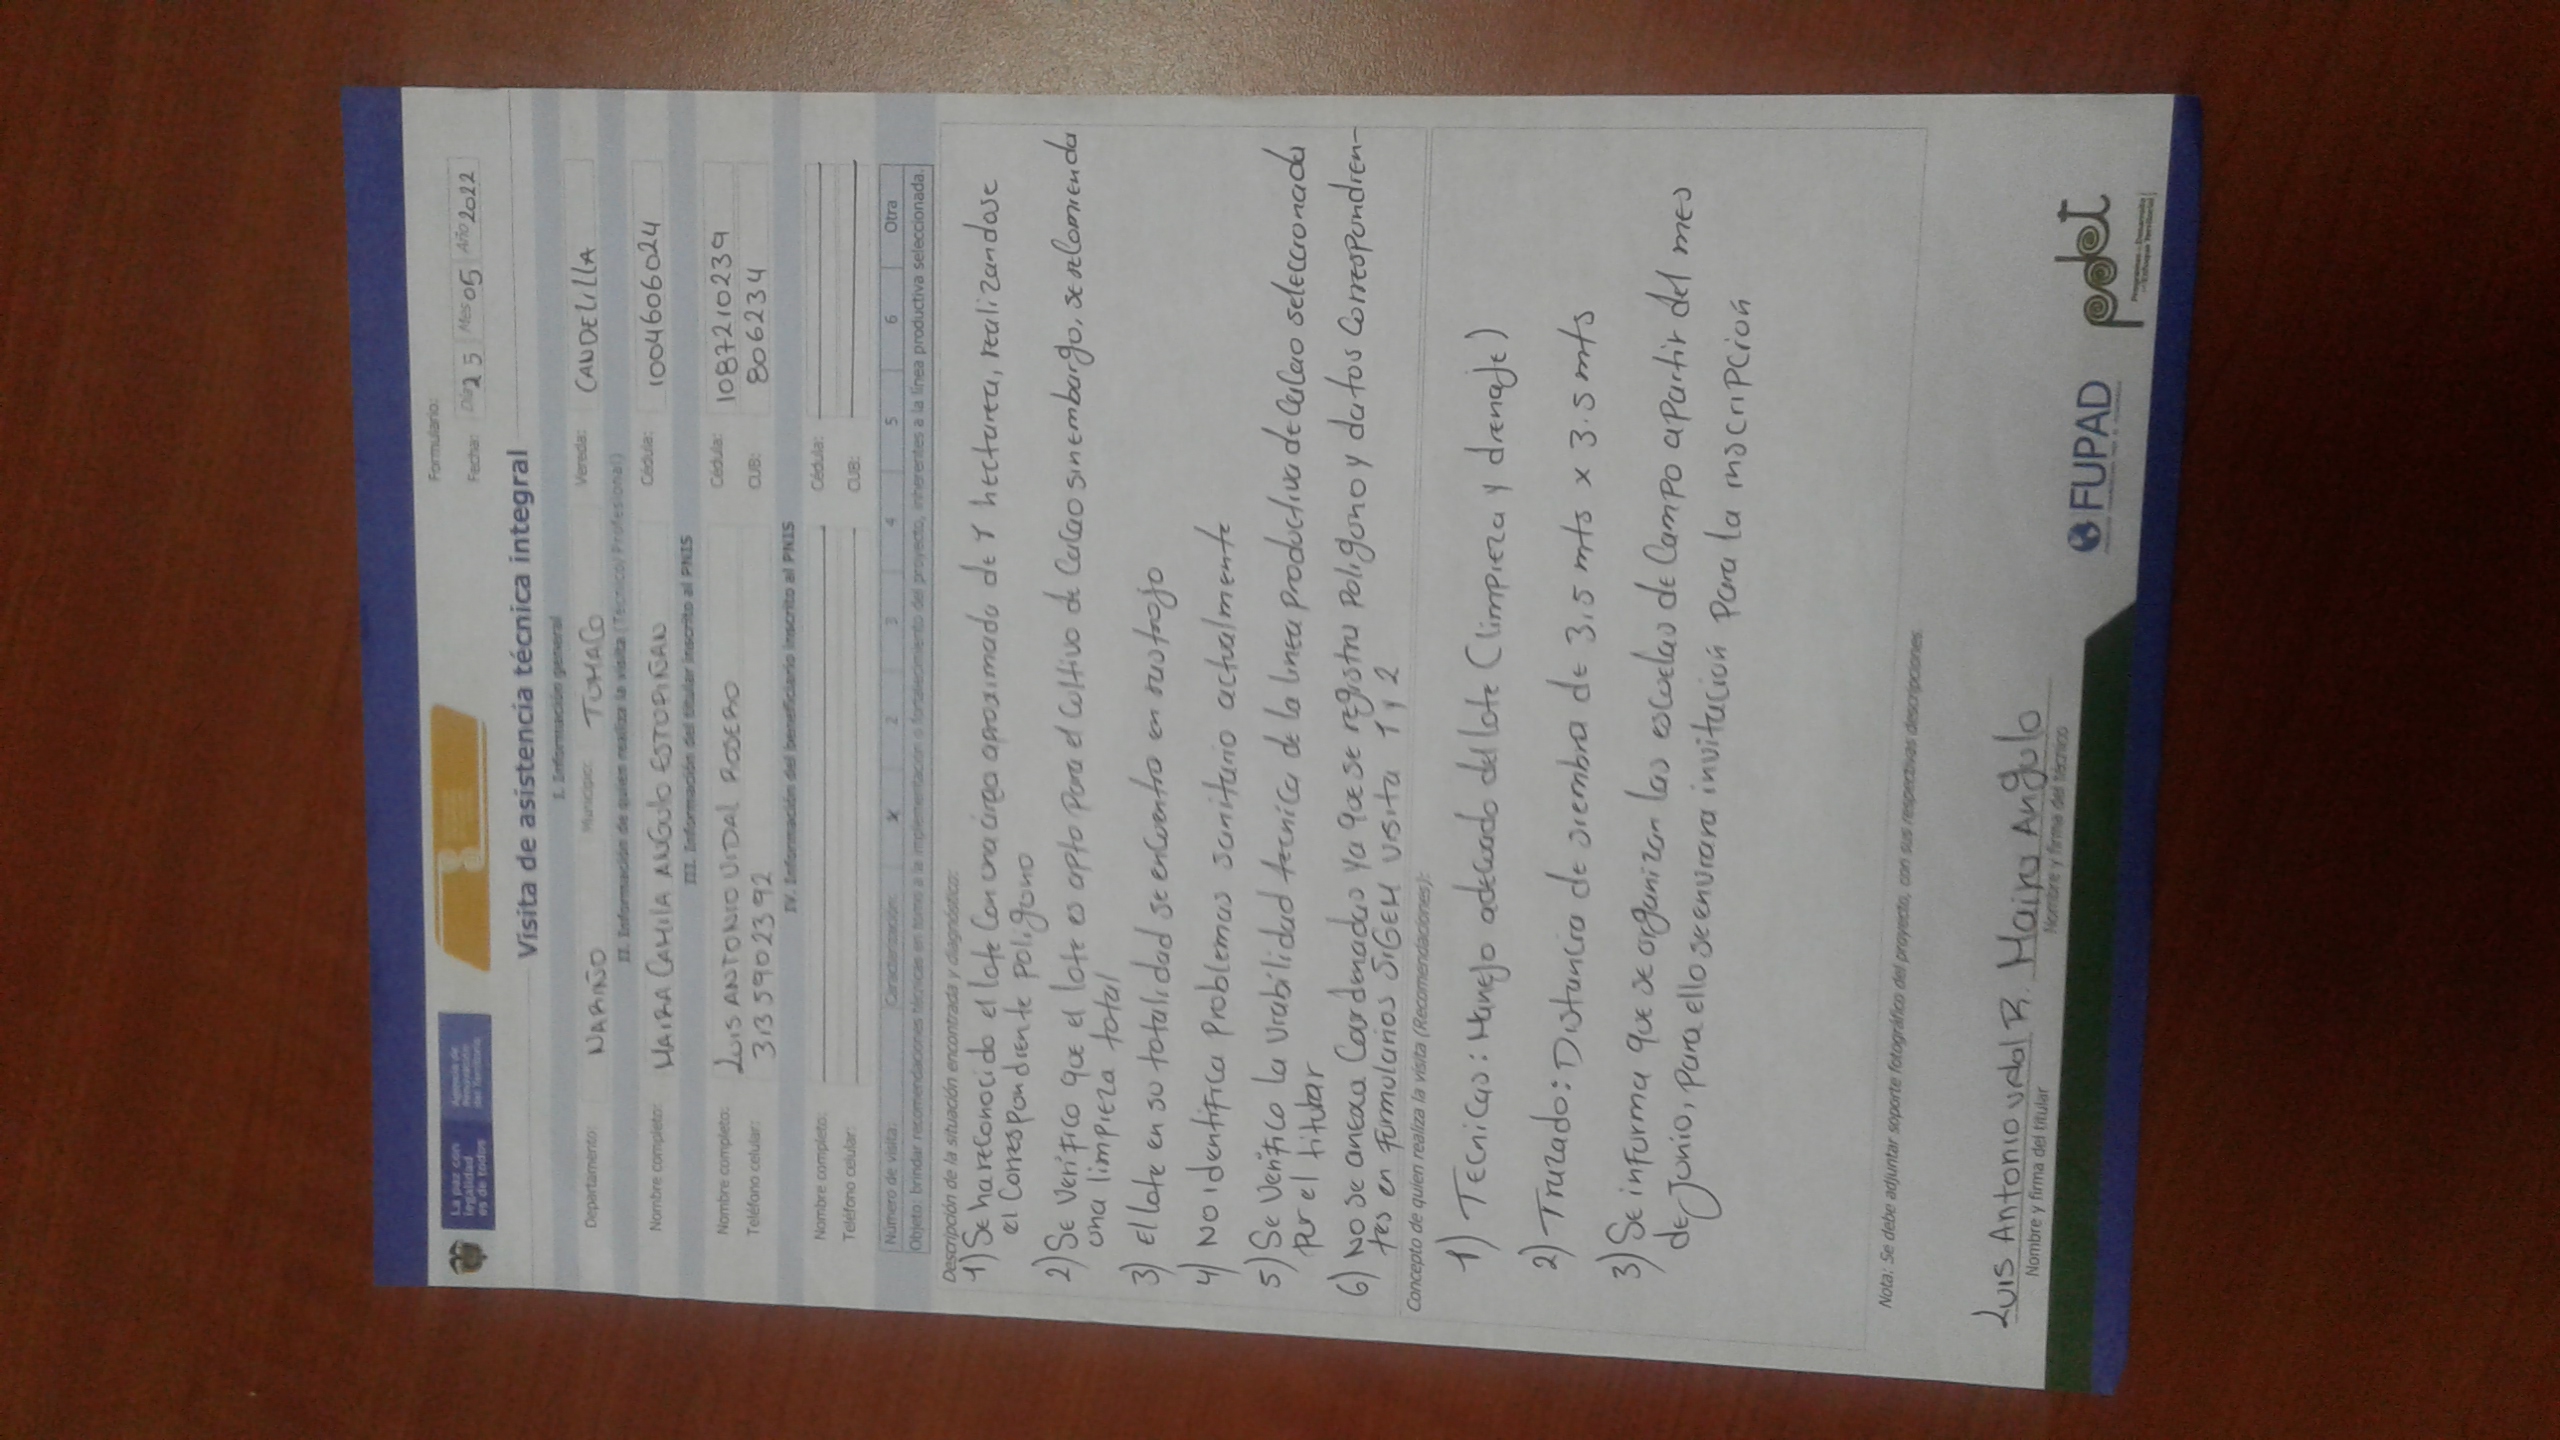 La paz con
legalidad
es de todos
Agencia de
Renovación
del Territorio
Formulario:
Fecha: Día 25 Mes 05 Año 2022
Visita de asistencia técnica integral
I. Información general
Departamento: NARIÑO Municipio: TUMACO Vereda: CANDELILLA
II. Información de quien realiza la visita (Técnico/Profesional)
Nombre completo: MAIRA CAMILA ANGULO ESTUPIÑAN Cédula: 1004606024
III. Información del titular inscrito al PNIS
Nombre completo: LUIS ANTONIO VIDAL ROSERO Cédula: 1087210239
Teléfono celular: 3135902392 CUB: 806234
IV. Información del beneficiario inscrito al PNIS
Nombre completo: Cédula:
Teléfono celular: CUB:
Número de visita: Caracterización: X 2 3 4 5 6 Otra
Objeto: brindar recomendaciones técnicas en torno a la implementación o fortalecimiento del proyecto, inherentes a la línea productiva seleccionada.
Descripción de la situación encontrada y diagnóstico:
1) Se ha reconocido el lote con una area aproximada de 1 hectarea, realizandose
el correspondiente poligono
2) Se verifico que el lote es apto para el cultivo de cacao sin embargo, se recomienda
una limpieza total
3) El lote en su totalidad se encuentra en rastrojo
4) No identifica problemas sanitario actualmente
5) Se verifico la viabilidad tecnica de la linea productiva de cacao seleccionada
por el titular
6) No se anexa coordenadas ya que se registra poligono y datos correspondien-
tes en formularios SIGEM visita 1 y 2
Concepto de quien realiza la visita (Recomendaciones):
1) Tecnicas: Manejo adecuado del lote (limpieza y drenaje)
2) Trazado: Distancia de siembra de 3,5 mts x 3.5 mts
3) Se informa que se organizan las escuelas de campo apartir del mes
de Junio, para ello se enviara invitación para la inscripción
Nota: Se debe adjuntar soporte fotográfico del proyecto, con sus respectivas descripciones.
Luis Antonio vidal R. Maira Angulo
Nombre y firma del titular Nombre y firma del técnico
FUPAD
pdet
Programas de Desarrollo
con Enfoque Territorial